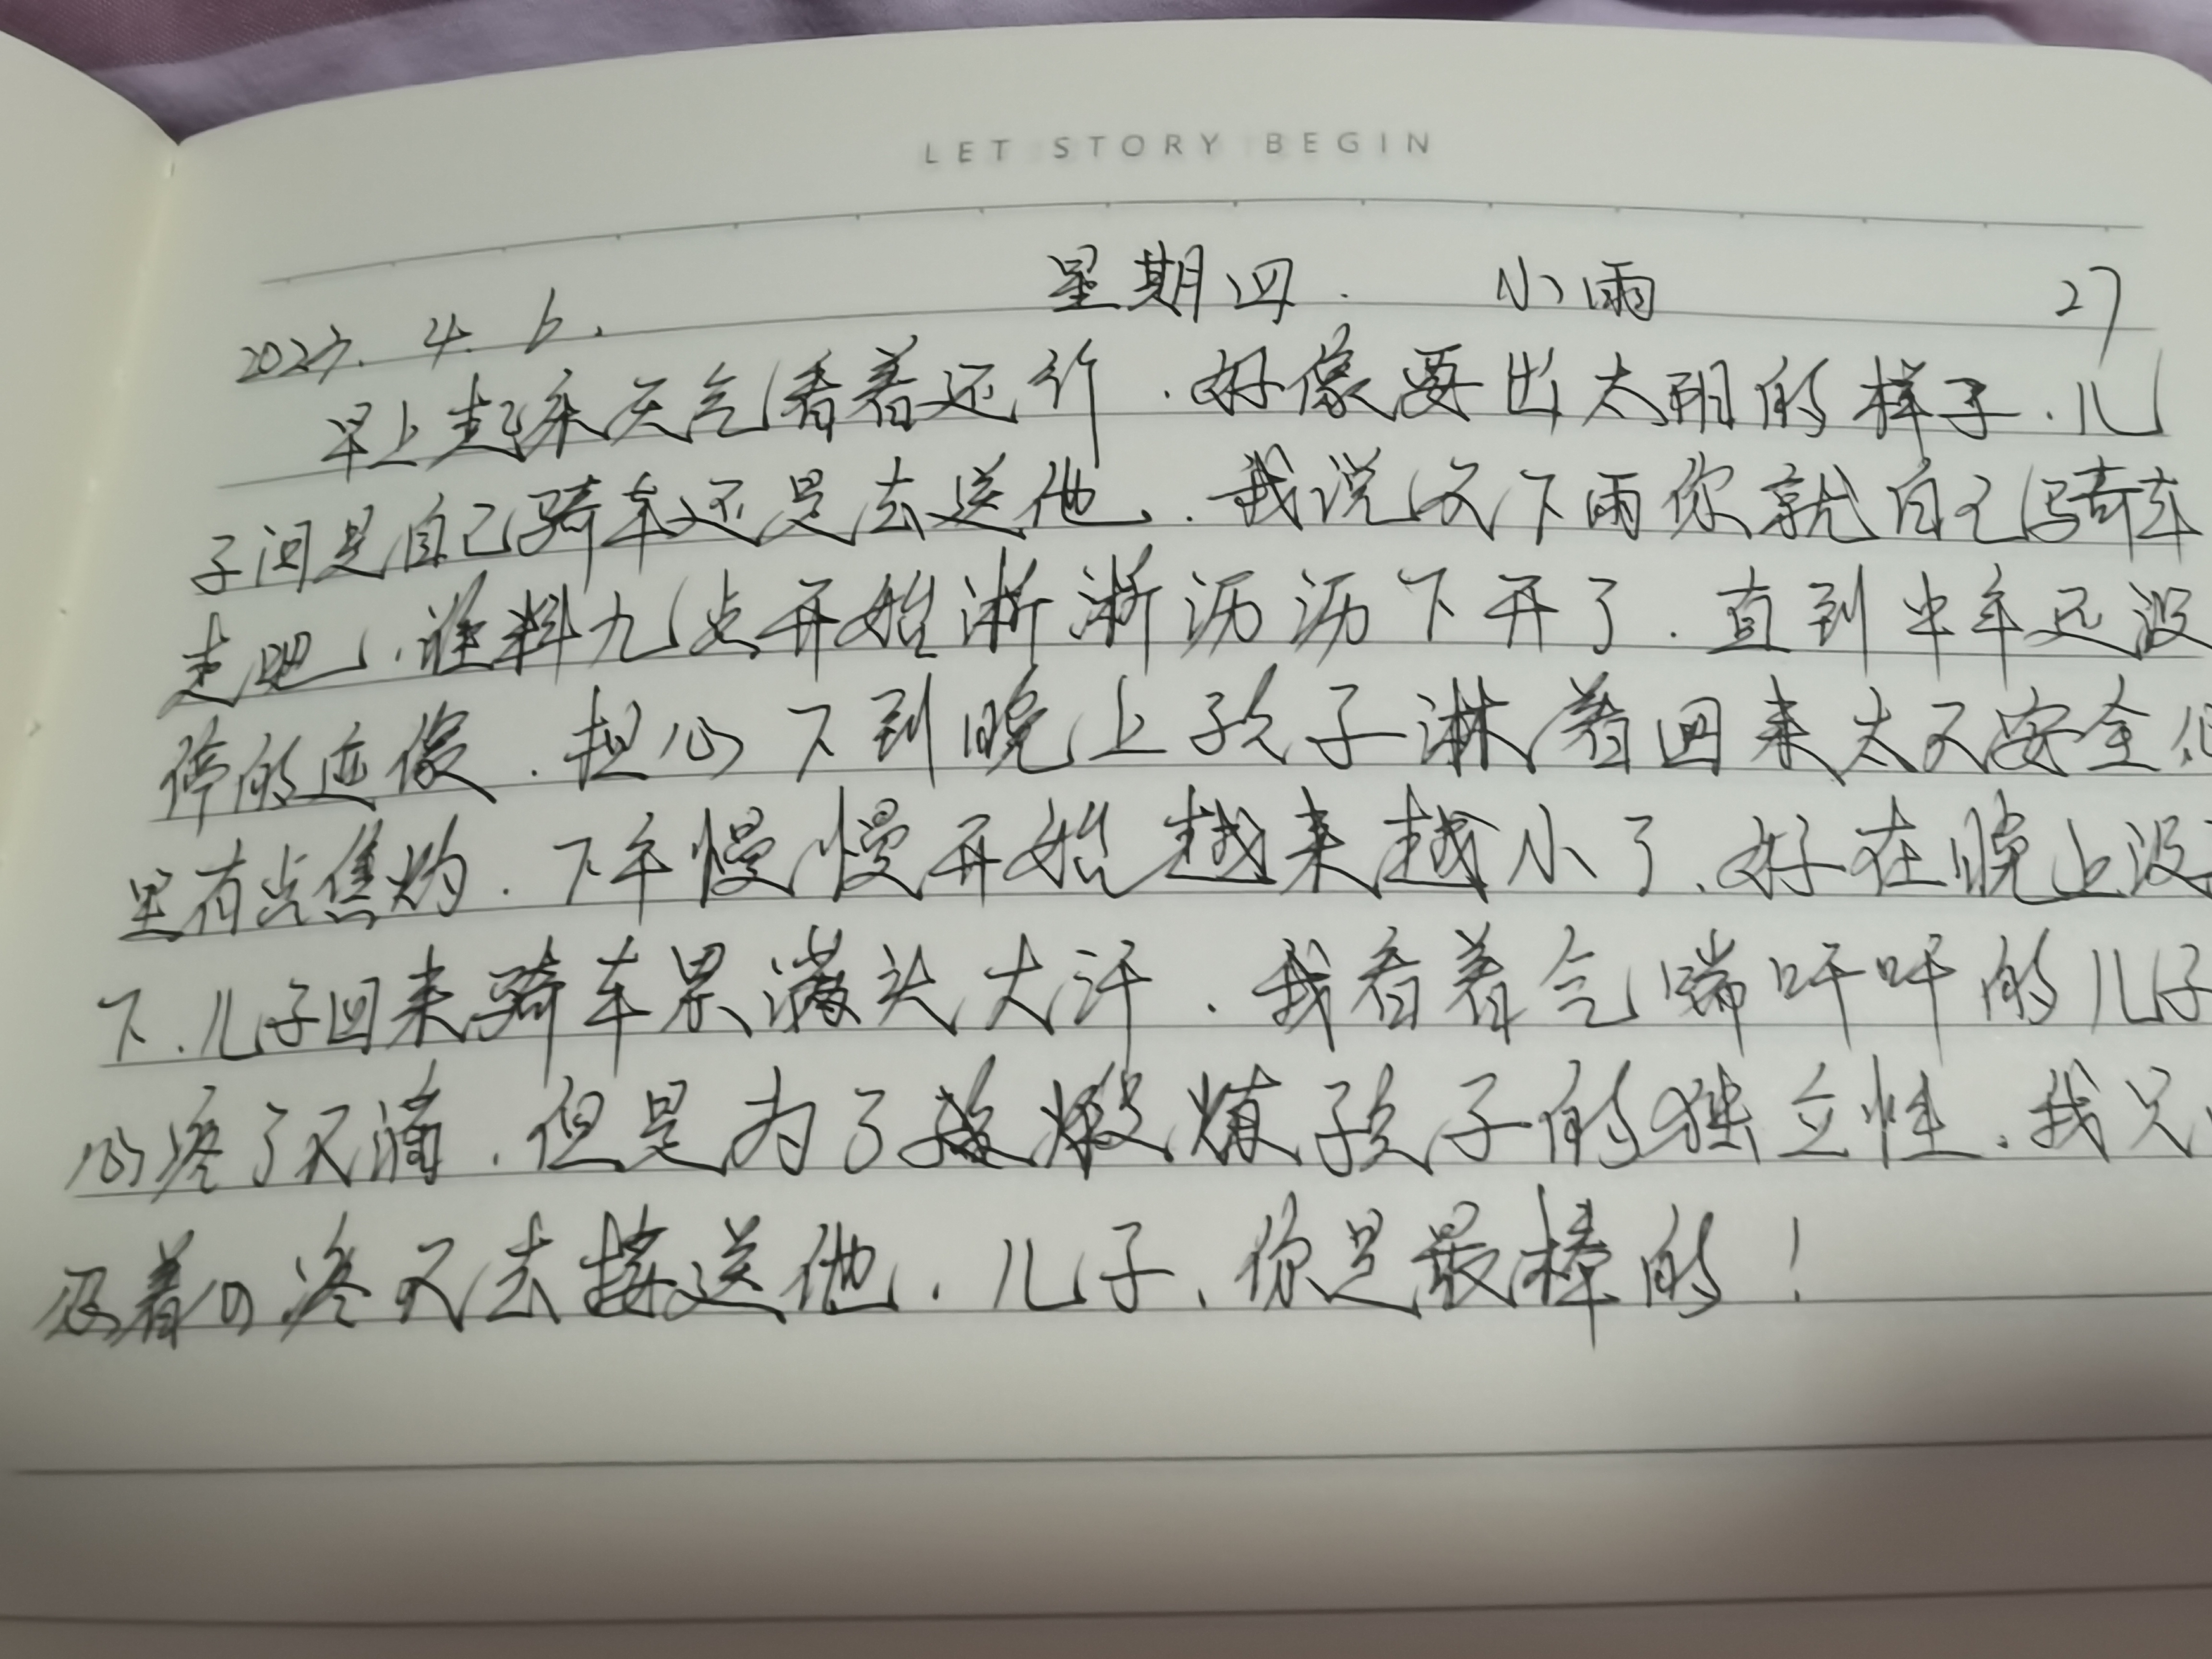 LET STORY BEGIN
2023. 4. 6. 星期四. 小雨 27
早上起来天气看着还行.好像要出太阳的样子.儿
子问是自己骑车还是去送他.我说不下雨你就自己骑车
走吧.谁料九点开始淅淅沥沥下开了.直到中午还没
停的迹像.担心下到晚上孩子淋着回来太不安全
里有点焦灼.下午慢慢开始越来越小了.好在晚上没
下.儿子回来骑车累满头大汗.我看着气喘吁吁的儿子
心疼了不滴.但是为了煅煉孩子的独立性.我只
忍着心疼不去接送他.儿子、你是最棒的!